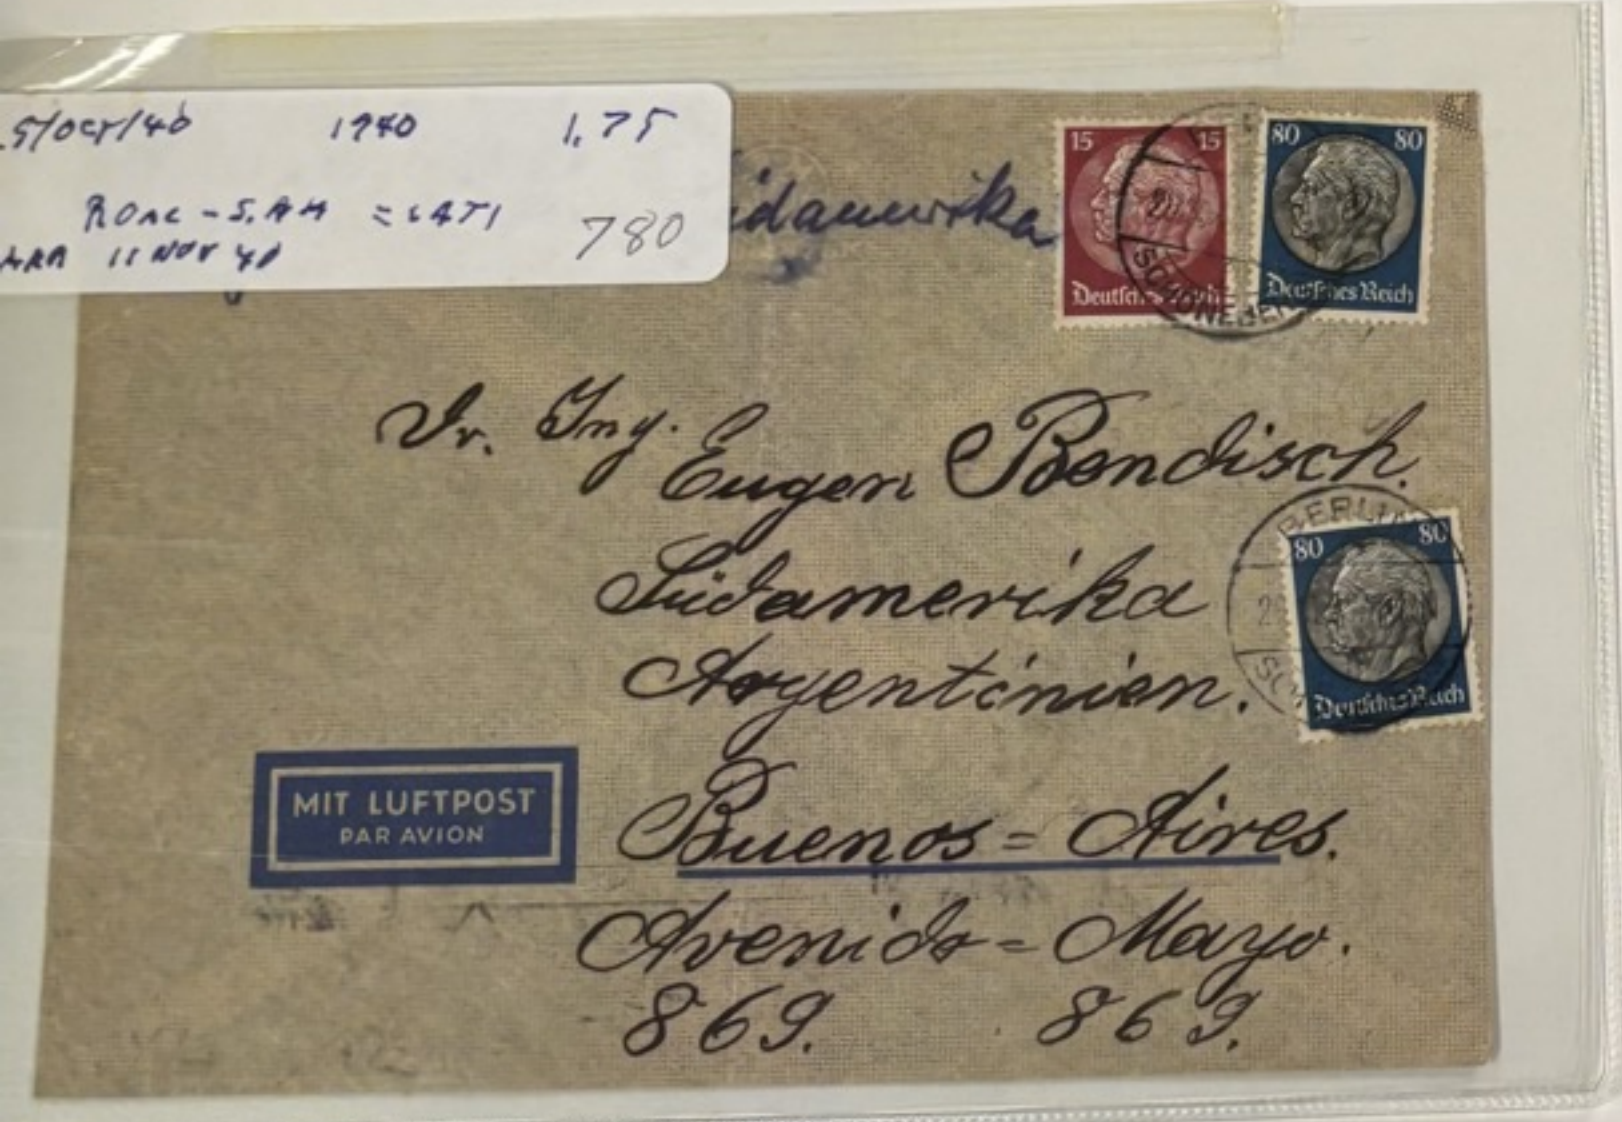 5/OCT/40 1940 1.75
ROAC - S.AM = LATI 780
11 NOV 40
idamerika
15 15
Deutsches Reich
SCHÖNEBER
80 80
Deutsches Reich
Dr. Ing.
Eugen Bendisch.
Südamerika
Argentinien.
BERLIN
80 80
29
SC
Deutsches Reich
MIT LUFTPOST
PAR AVION
Buenos = Aires.
Avenida = Mayo.
869. 869.